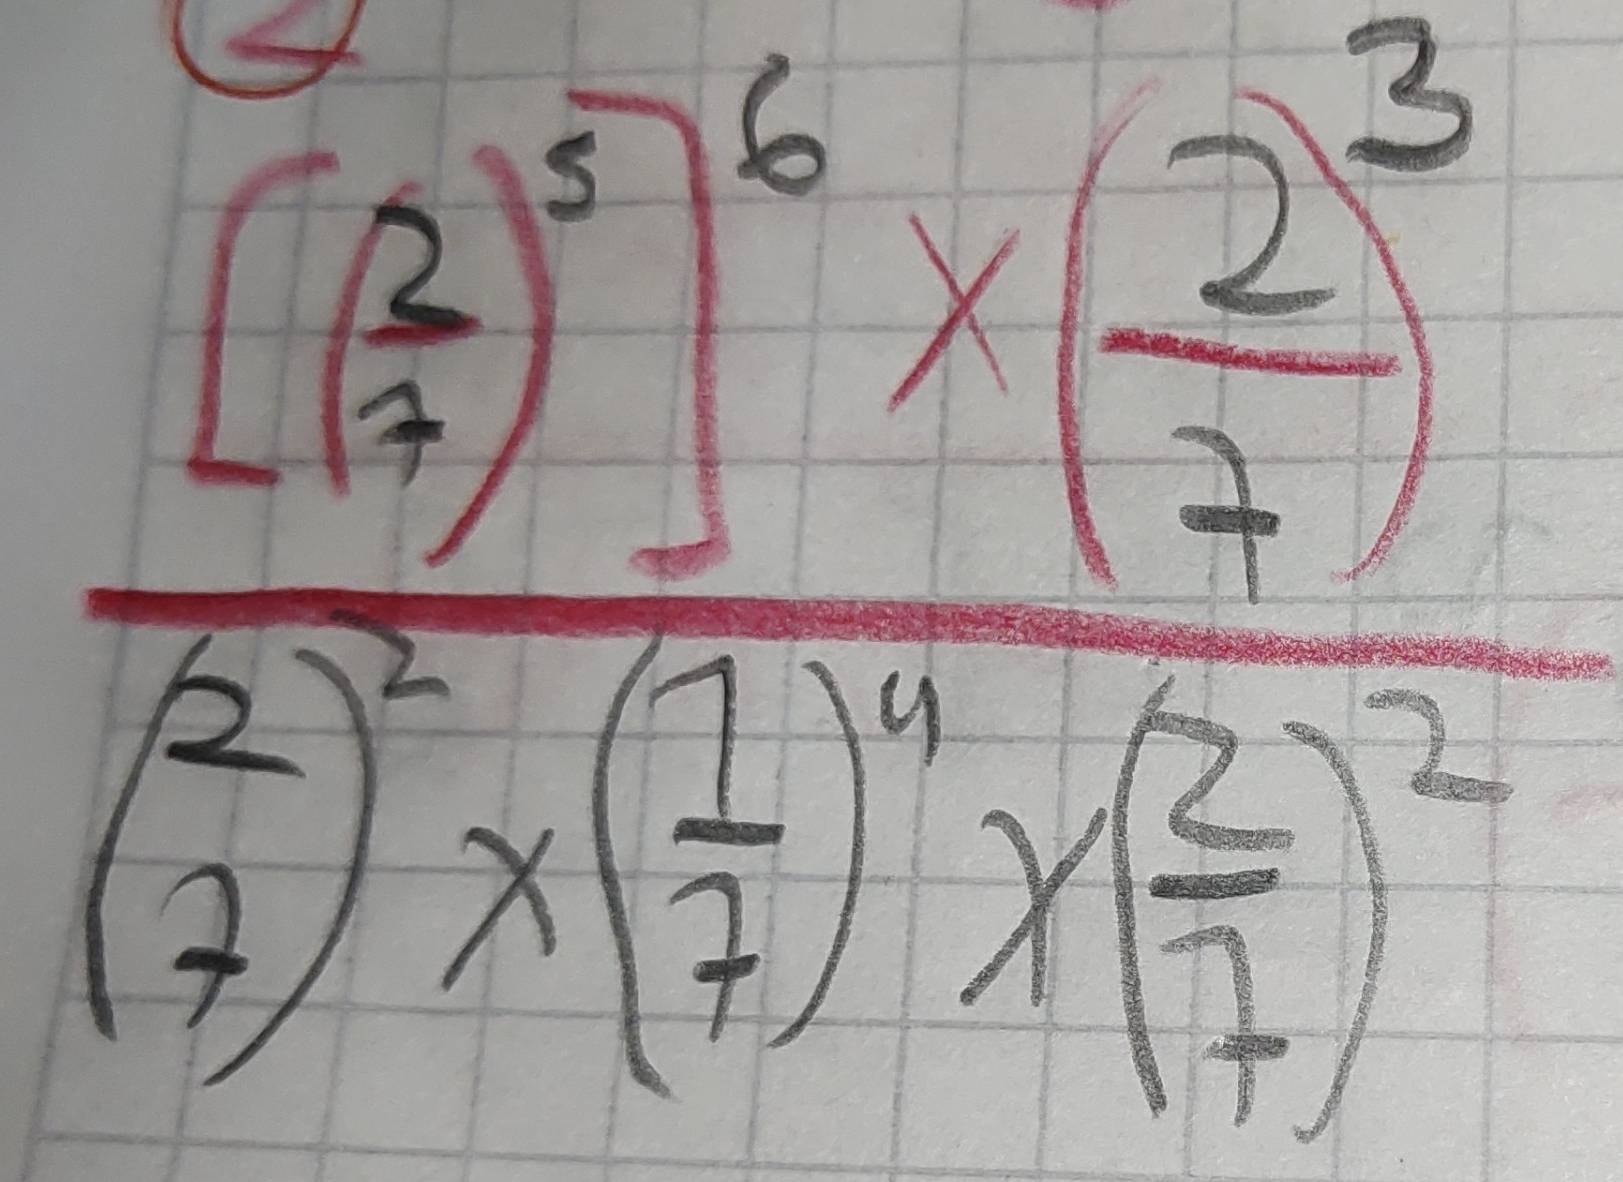 2
[(2/7)^5]^6 × (2/7)^3
(2 7)^2 × (1/7)^4 × (2/7)^2